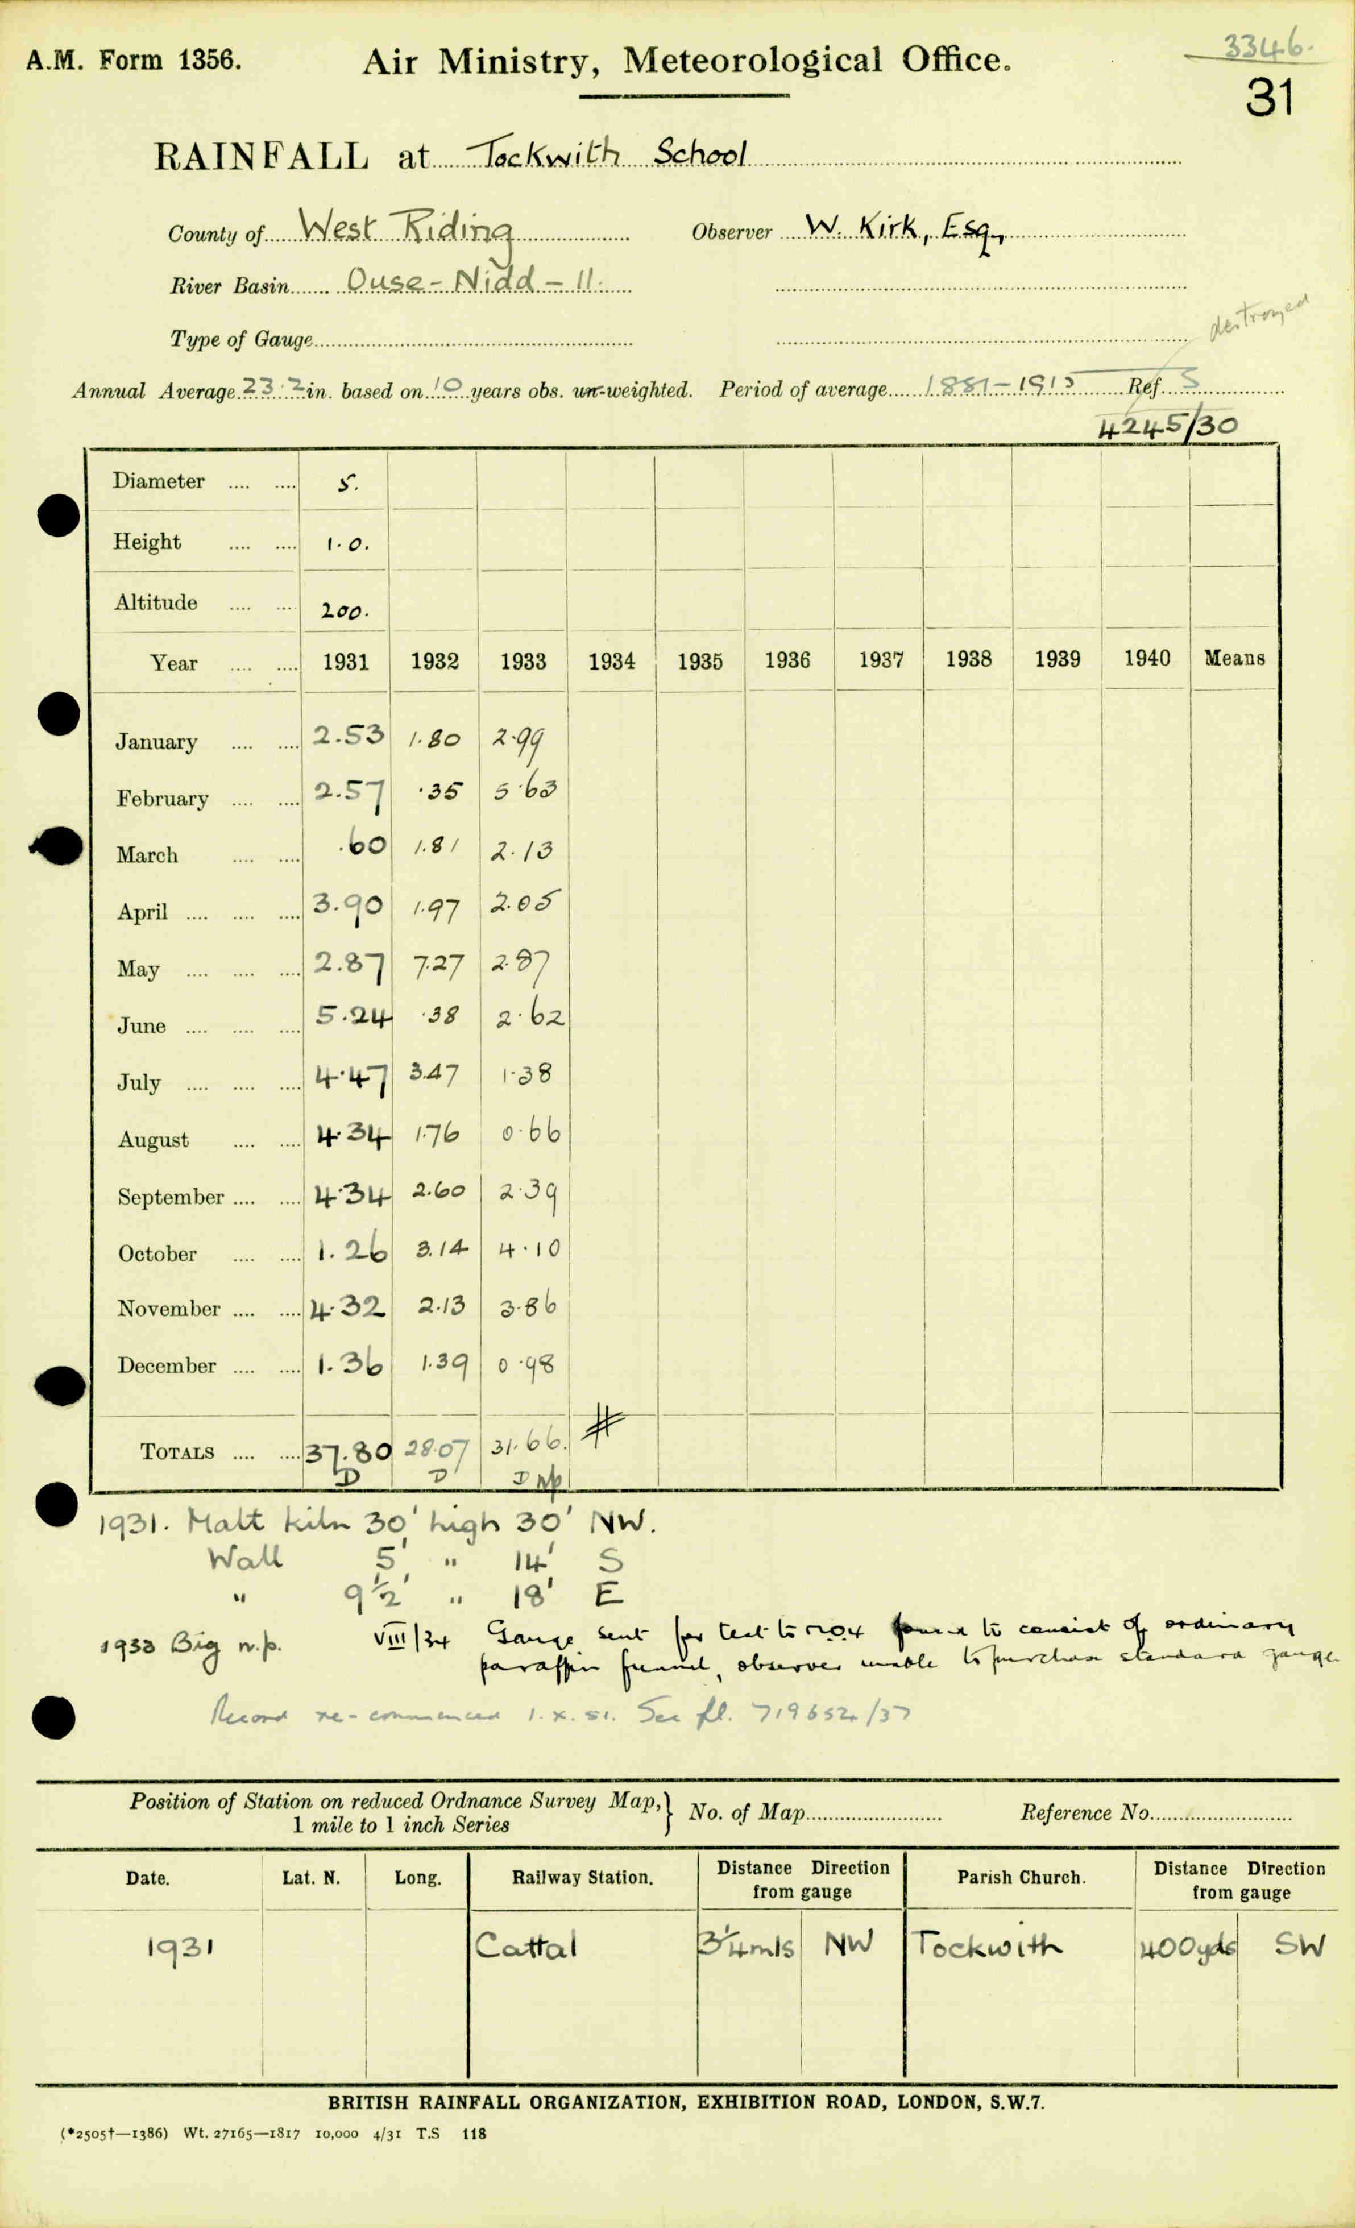 3346.
A.M. Form 1356. Air Ministry, Meteorological Office.
31
RAINFALL at Tockwith School
County of West Riding Observer W. Kirk, Esq,
River Basin Ouse-Nidd-11.
destroyed
Type of Gauge
Annual Average 23.2 in. based on 10 years obs. un-weighted. Period of average 1881-1915 Ref. S
4245/30
Diameter 5.
Height 1.0.
Altitude 200.
Year 1931 1932 1933 1934 1935 1936 1937 1938 1939 1940 Means
January 2.53 1.80 2.99
February 2.57 .35 5.63
March .60 1.81 2.13
April 3.90 1.97 2.05
May 2.87 7.27 2.87
June 5.24 .38 2.62
July 4.47 3.47 1.38
August 4.34 1.76 0.66
September 4.34 2.60 2.39
October 1.26 3.14 4.10
November 4.32 2.13 3.86
December 1.36 1.39 0.98
TOTALS 37.80 28.07 31.66. #
D D D n/p
1931. Malt kiln 30' high 30' NW.
Wall 5' " 14' S
" 9½' " 18' E
1933 Big n.p. VIII/34 Gauge sent for test to found to consist of ordinary
paraffin funnel, observer unable to purchase standard gauge
Record re-commenced 1.X.51. See fl. 719652/37
Position of Station on reduced Ordnance Survey Map,} No. of Map Reference No.
1 mile to 1 inch Series
Date. Lat. N. Long. Railway Station. Distance Direction from gauge Parish Church. Distance Direction from gauge
1931 Cattal 3¼mls NW Tockwith 400yds SW
BRITISH RAINFALL ORGANIZATION, EXHIBITION ROAD, LONDON, S.W.7.
(*2505†—1386) Wt. 27165—1817 10,000 4/31 T.S 118